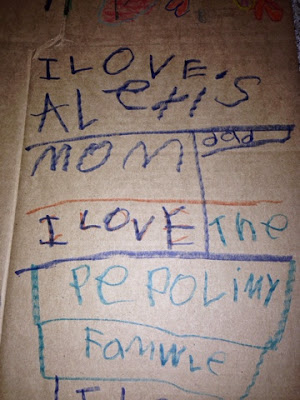 I LOVE.
ALexis
MOM dad
I LOVE The
PePOLiNY
FamWLe
I L